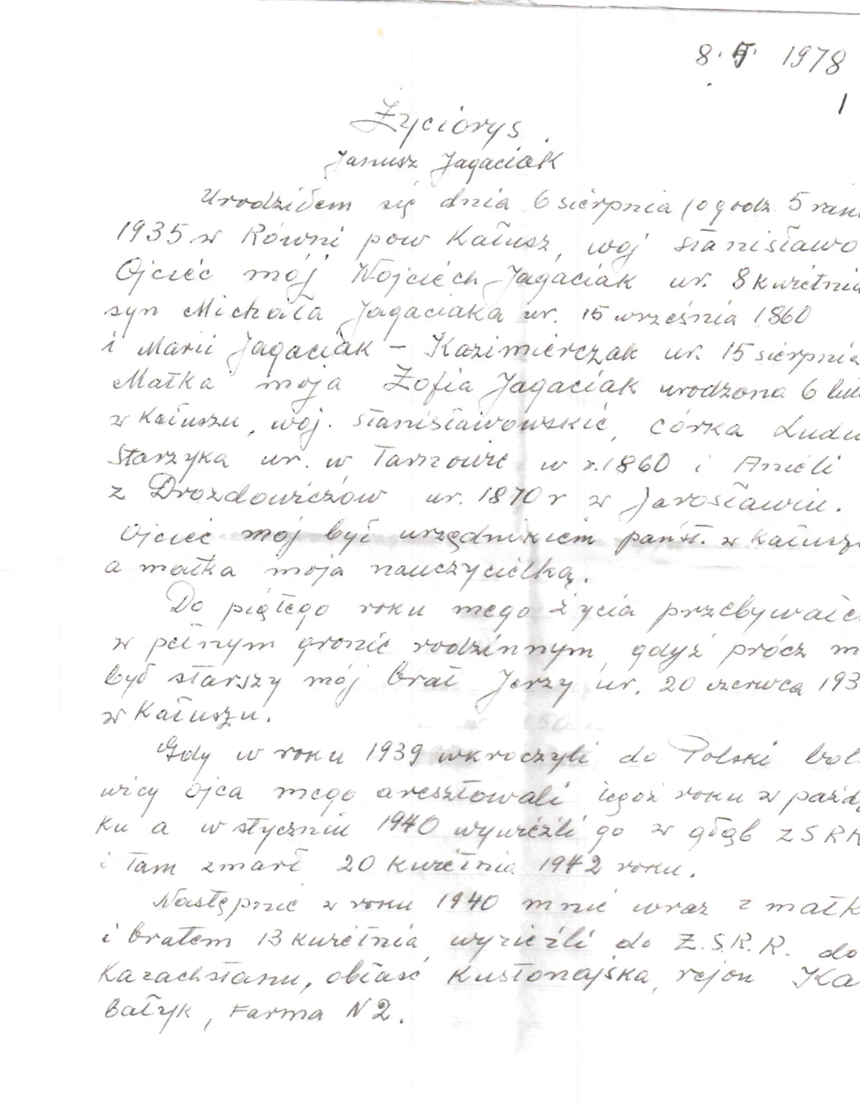 8. 5. 1978
1
Życiorys.
Janusz Jagaciak
Urodziłem się dnia 6 sierpnia (o godz. 5 ran
1935 w Równi pow Kałusz, woj stanisławo
Ojciec mój Wojciech Jagaciak ur. 8 kwietnia
syn Michała Jagaciaka ur. 15 września 1860
i Marii Jagaciak – Kazimierczak ur. 15 sierpnia
Matka moja Zofia Jagaciak urodzona 6 lut
w Kałuszu, woj. stanisławowskie, córka Ludw
Starzyka ur. w Tarnowie w r. 1860 i Anieli
z Drozdowiczów ur. 1870 r w Jarosławiu.
Ojciec mój był urzędnikiem państ. w Kałuszu
a matka moja nauczycielką.
Do piątego roku mego życia przebywałe
w pełnym gronie rodzinnym, gdyż prócz m
był starszy mój brat Jerzy ur. 20 czerwca 193
w Kałuszu.
Gdy w roku 1939 wkroczyli do Polski bol
wicy ojca mego aresztowali tegoż roku w paźdz
ku a w styczniu 1940 wywieźli go w głąb ZSRR
i tam zmarł 20 kwietnia 1942 roku.
Następnie w roku 1940 mnie wraz z matk
i bratem 13 kwietnia wywieźli do Z.S.R.R. do
Kazachstanu, obłaść Kustonajska, rejon Ka
Bałyk, Farma N2.